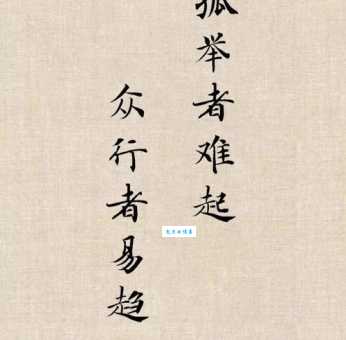 孤举者难起
众行者易趋